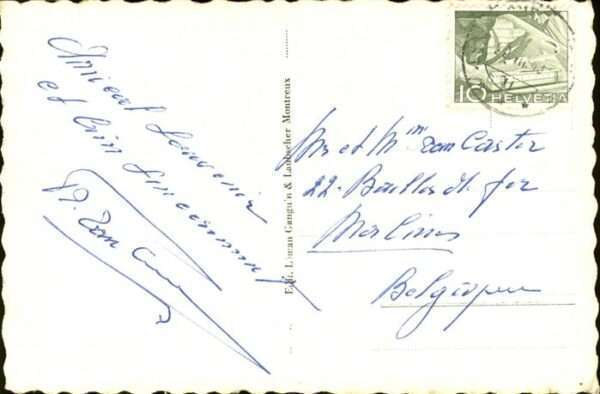 Amical Souvenir
et bien sincèrement
Edit. Léman Cangu'n & Laubscher Montreux
10 HELVETIA
Mr et Mme van Caster
22
Malines
Belgique